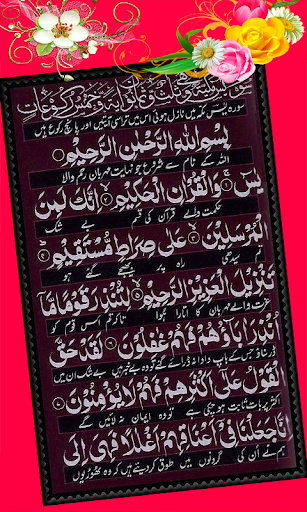 سورہ یٰسٓ مکہ میں نازل ہوئی اس میں تراسی آیتیں اور پانچ رکوع ہیں
بِسْمِ اللهِ الرَّحْمٰنِ الرَّحِيْمِ
اللہ کے نام سے شروع جو نہایت مہربان رحم والا
يٰسٓ ۚ وَالْقُرْاٰنِ الْحَكِيْمِ ۙ اِنَّكَ لَمِنَ
حکمت والے قرآن کی قسم بے شک
الْمُرْسَلِيْنَ ۙ عَلٰى صِرَاطٍ مُّسْتَقِيْمٍ ؕ
سیدھی راہ پر بھیجے گئے ہو تم
تَنْزِيْلَ الْعَزِيْزِ الرَّحِيْمِ ۙ لِتُنْذِرَ قَوْمًا مَّآ
عزت والے مہربان کا اتارا ہوا تاکہ تم اس قوم کو
اُنْذِرَ اٰبَآؤُهُمْ فَهُمْ غٰفِلُوْنَ لَقَدْ حَقَّ
ڈر سناؤ جس کے باپ دادا نہ ڈرائے گئے تو وہ بے خبر ہیں بے شک ان میں
الْقَوْلُ عَلٰٓى اَكْثَرِهِمْ فَهُمْ لَا يُؤْمِنُوْنَ
اکثر پر بات ثابت ہو چکی ہے تو وہ ایمان نہ لائیں گے
اِنَّا جَعَلْنَا فِيْٓ اَعْنَاقِهِمْ اَغْلٰلًا فَهِيَ اِلَى
ہم نے ان کی گردنوں میں طوق کر دیئے ہیں کہ وہ ٹھوڑیوں